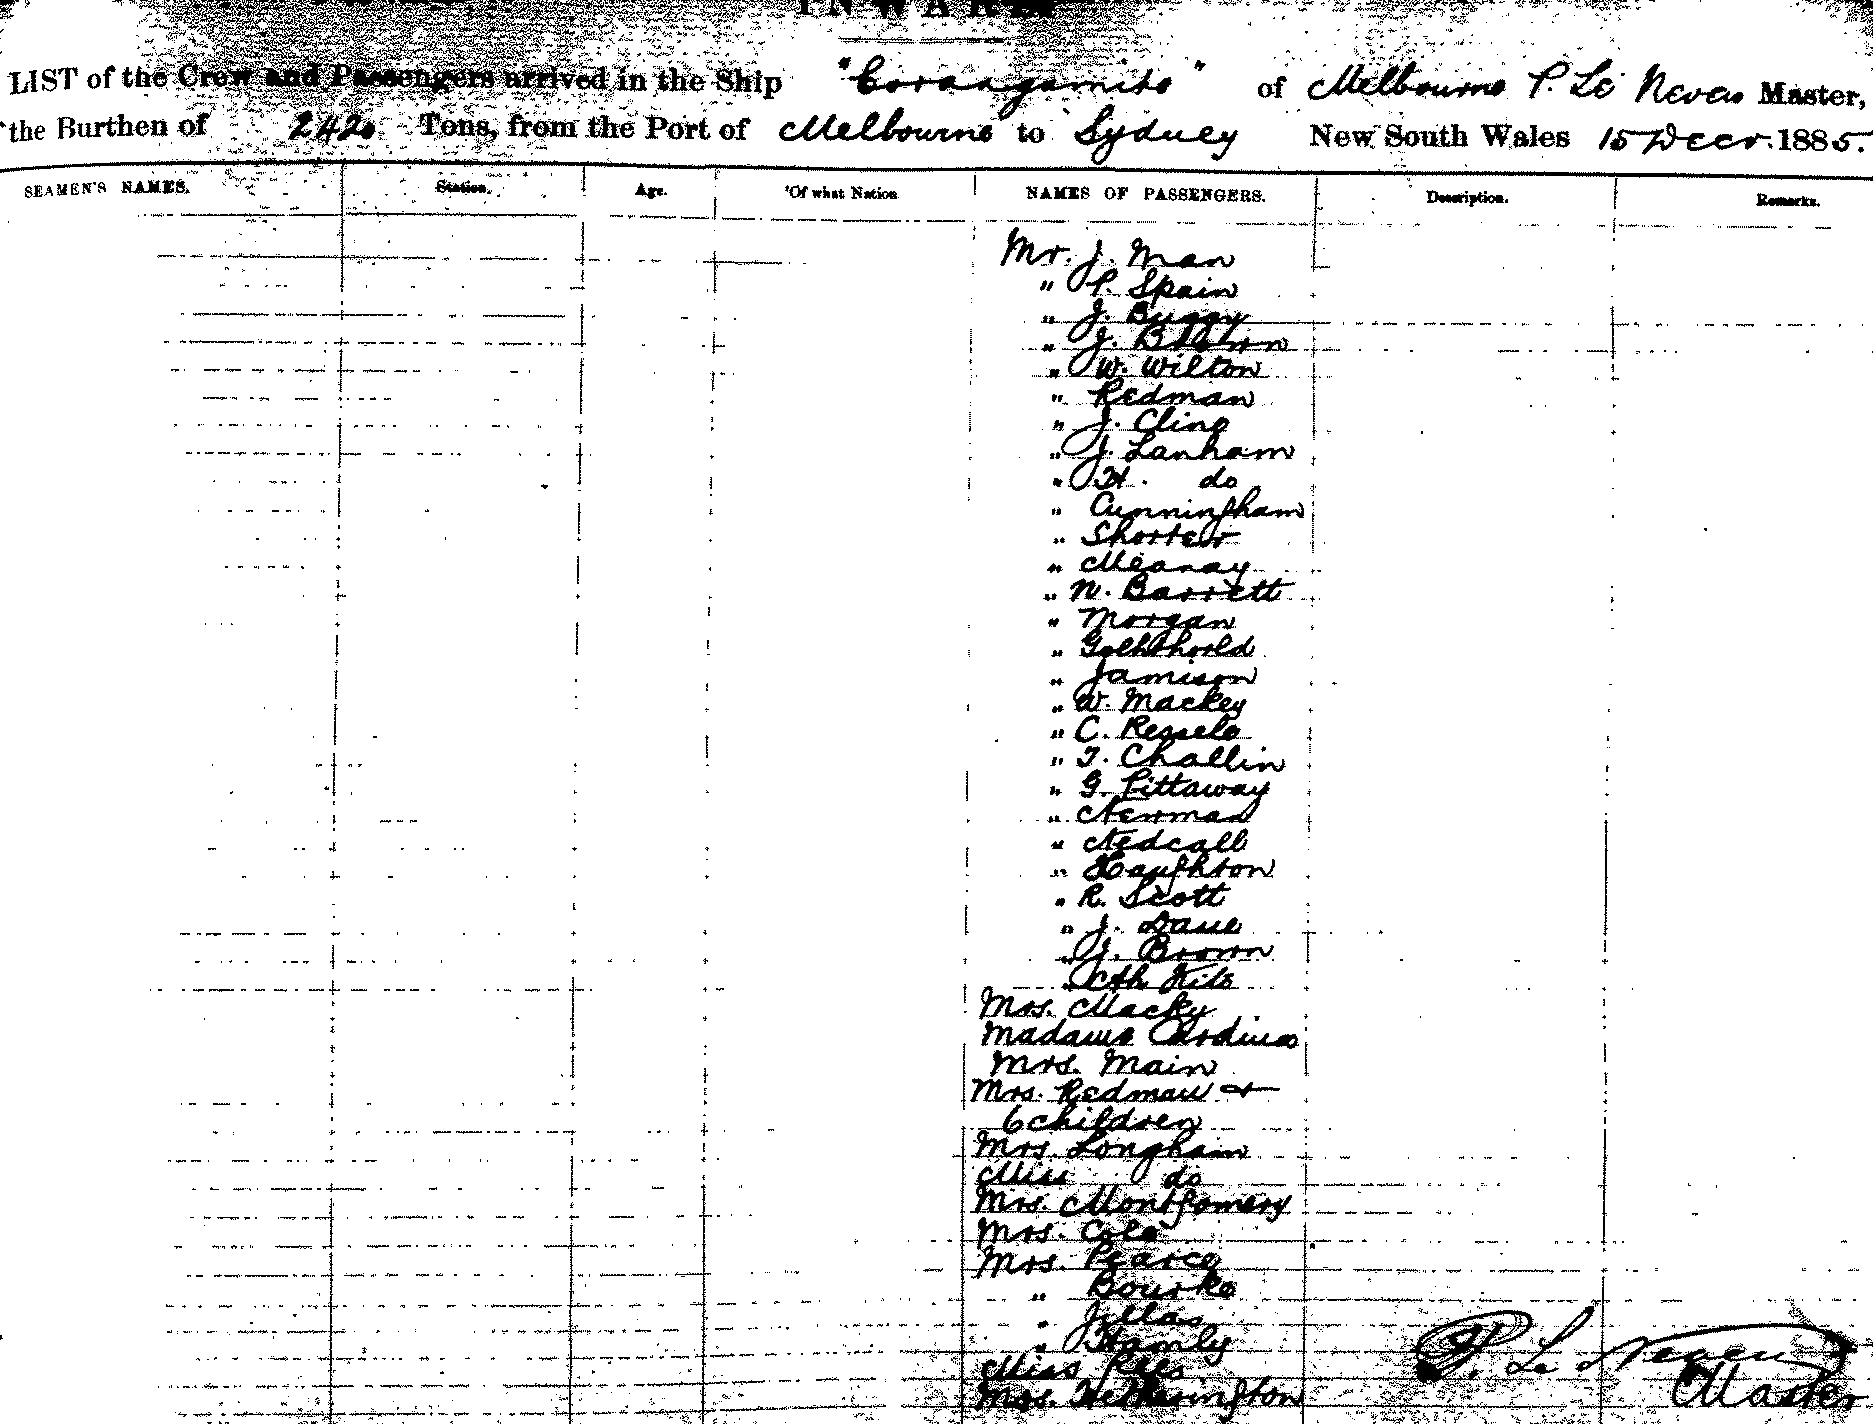 INWARD
LIST of the Crew and Passengers arrived in the Ship "Corangamite" of Melbourne P. Le Neven Master,
the Burthen of 2420 Tons, from the Port of Melbourne to Sydney New South Wales 15 Decr. 1885.
SEAMEN'S NAMES. Station. Age. Of what Nation NAMES OF PASSENGERS. Description. Remarks.
Mr. J. Man
" P. Spain
" J. Buggy
" J. Brown
" W. Wilton
" Redman
" J. Cline
" J. Lanham
" H. do
" Cunningham
" Shorter
" Meanay
" N. Barrett
" Morgan
"
" Jamison
" W. Mackey
" C.
" T. Challin
" G. Pittaway
" Newman
" Nedcall
" Haughton
" R. Scott
" J. Dave
" J. Brown
"
Mrs. Macky
Madame
Mrs. Main
Mrs. Redman &
6 children
Mrs Longham
Miss do
Mrs. Montgomery
Mrs. Cole
Mrs. Pearce
" Bourke
"
" Hamly
Miss Rees
Mrs. Hetherington
P. Le Neven
Master